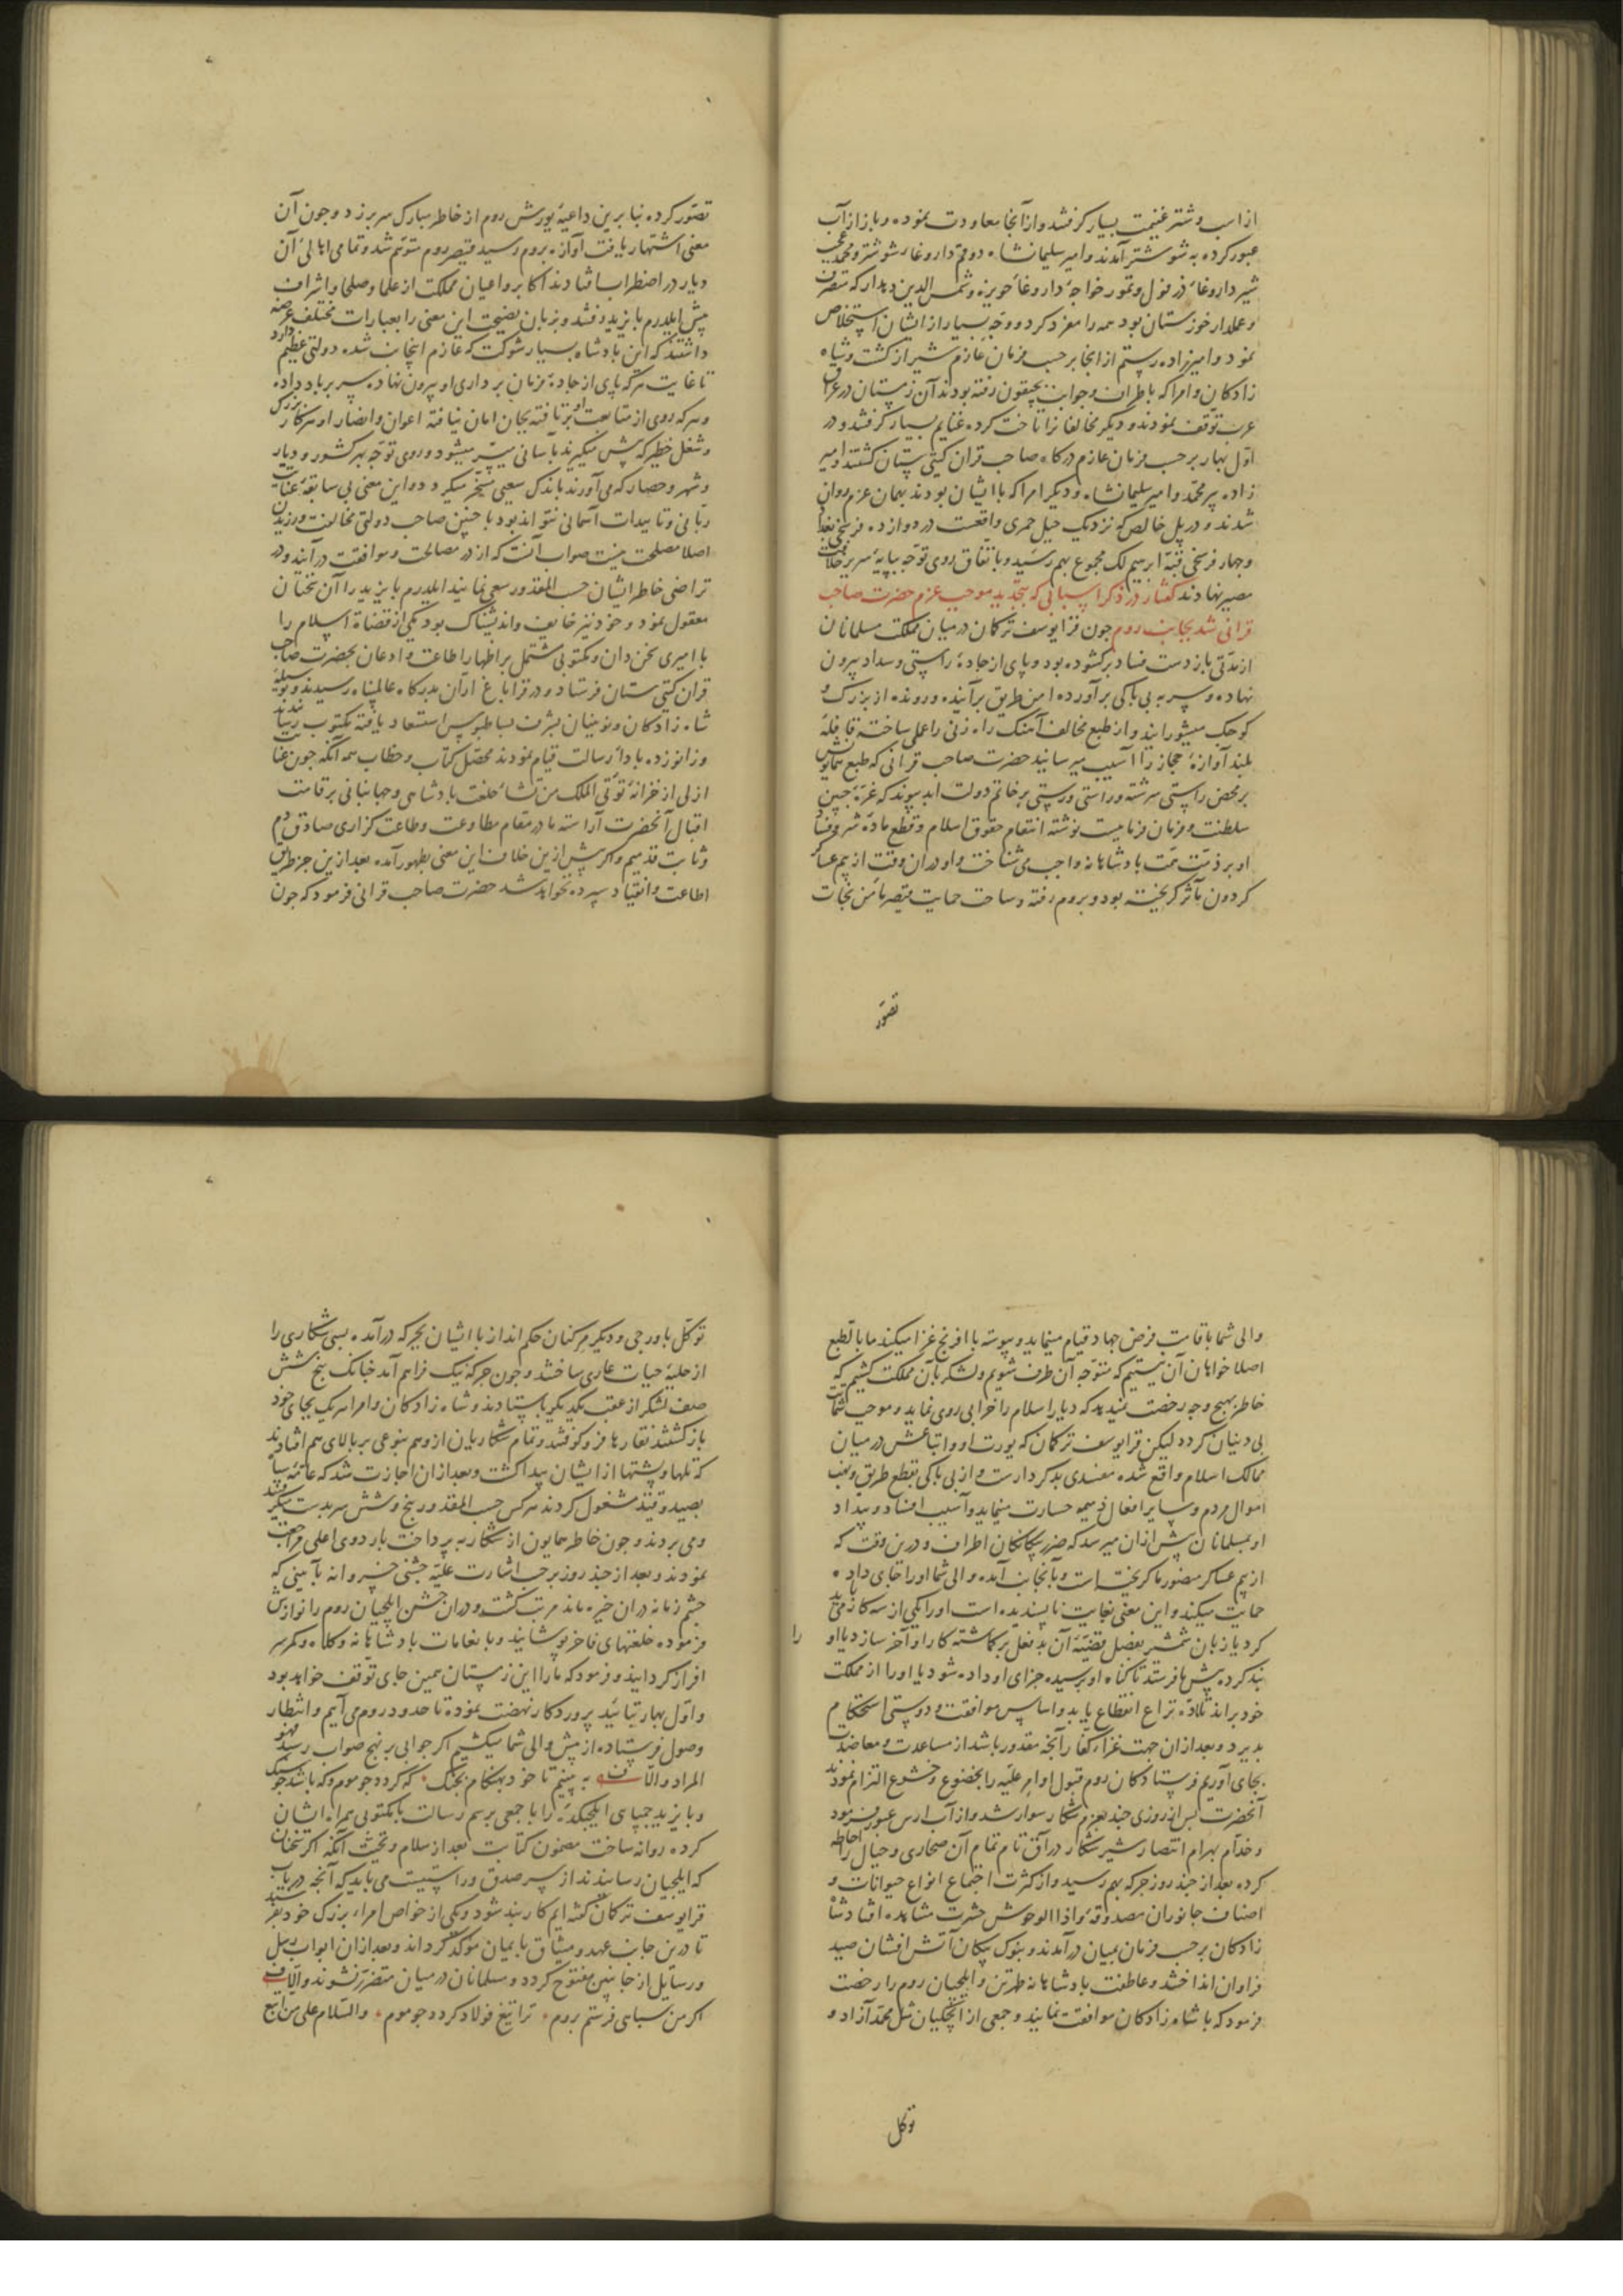 از اسب و شتر غنیمت بسیار گرفتند و از آنجا معاودت نموده و باز از آب
عبور کرده به شوشتر آمدند و امیر سلیمانشاه دوقم داروغاء شوشتر و محمد عجب
شیر داروغاء دزفول و تمور خواجه داروغاء حویزه و شمس الدین دهدار که متصرف
و عملدار خوزستان بود همه را مفرد کرد و وجه بسیار از ایشان استخلاص
نمود و امیرزاده رستم از آنجا برحسب فرمان عازم شیراز گشت و شاه
زادگان و امرا که باطراف و جوانب بجپقون رفته بودند آن زمستان در عراق
عرب توقف نمودند و دیگر مخالفانرا تاخت کرده غنایم بسیار گرفتند و در
اول بهار برحسب فرمان عازم درگاه صاحب قران گیتی ستان گشتند و امیر
زاده پیر محمد و امیر سلیمانشاه و دیگر امرا که با ایشان بودند بهمان عزم روان
شدند و در پل خالص که نزدیک جبل حمری واقعست در دوازده فرسخی بغداد
و چهار فرسخی قبه ابرهیم لک مجموع بهم رسید و باتفاق روی توجه بپایه سریر خلافت
مصیر نهادند گفتار در ذکر اسبابی که بتجدید موجب عزم حضرت صاحب
قرانی شد بجانب روم جون قرا یوسف ترکمان در میان مملکت مسلمانان
از مدتی باز دست فساد برگشوده بود و پای از جاده راستی و سداد بیرون
نهاده و سر به بی باکی برآورده امن طریق برآینده و رونده از بزرگ و
کوجک میشورانید و از طبع مخالف آهنگ راه زنی را عملی ساخته قافله
بلند آوازه حجاز را آسیب میرسانید حضرت صاحب قرانی که طبع همایونش
بر محض راستی سرشته و راستی رستی بر خاتم دولت ابد پیوند که غره جبین
سلطنت و فرمان فرماییست نوشته انتقام حقوق اسلام و قطع ماده شر و فساد
او بر ذمت همت پادشاهانه واجب می شناخت و او در ان وقت از بیم عساکر
گردون مآثر گریخته بود و بروم رفته و ساحت حمایت قیصر مأمن نجات
تصور
تصور کرده بنا برین داعیه یورش روم از خاطر مبارک سر بر زد و جون آن
معنی اشتهار یافت آوازه بروم رسید قیصر روم متوهم شد و تمامی اهالی آن
دیار در اضطراب افتادند اکابر و اعیان مملکت از علما و صلحا و اشراف
پیش ایلدرم بایزید رفتند و بزبان نصیحت این معنی را بعبارات مختلف عرضه
داشتند که این پادشاه بسیار شوکت که عازم اینجانب شده دولتی عظیم دارد
تا غایت هرکه پای از جاده فرمان برداری او بیرون نهاده سر بر باد داده
و هرکه روی از متابعت او برتافته بجان امان نیافته اعوان و انصار او هر کار بزرگ
و شغل خطیر که پیش میگیرند باسانی میسر میشود و روی توجه بهر کشور و دیار
و شهر و حصار که می آورند باندک سعیی مسخر میگردد و این معنی بی سابقه عنایت
ربانی و تاییدات آسمانی نتواند بود با جنین صاحب دولتی مخالفت ورزیدن
اصلا مصلحت نیست صواب آنست که از در مصالحت و موافقت درآیند و در
تراضی خاطر ایشان حسب المقدور سعی نمایند ایلدرم بایزید را آن سخنان
معقول نمود و خود نیز خایف و اندیشناک بود یکی از قضاة اسلام را
با امیری سخن دان و مکتوبی مشتمل بر اظهار اطاعت و اذعان بحضرت صاحب
قران گیتی ستان فرستاد و در قراباغ اران بدرگاه عالمپناه رسیدند و بوسیله
شاه زادگان و نوینیان بشرف بساط بوس استسعاد یافته مکتوب رسانیدند
و زانو زده بادا رسالت قیام نمودند محصل کتاب و خطاب همه آنکه جون عنایت
ازلی از خزانه تؤتی الملک من تشاء خلعت پادشاهی و جهانبانی بر قامت
اقبال آنحضرت آراسته ما در مقام مطاوعت و طاعت گزاری صادق دم
و ثابت قدمیم و اگر پیش ازین خلاف این معنی بظهور آمده بعد ازین جز طریق
اطاعت و انقیاد سپرده نخواهد شد حضرت صاحب قرانی فرمود که جون
والی شما باقامت فرض جهاد قیام مینماید و پیوسته با افرنج غزا میکند ما بالطبع
اصلا خواهان آن نیستیم که متوجه آن طرف شویم و لشکر بآن مملکت کشیم که
خاطر بهیچ وجه رخصت نمیدهد که دیار اسلام را خرابی روی نماید و موجب شماتت
بی دینان گردد لیکن قرا یوسف ترکمان که یورت او و اتباعش در میان
ممالک اسلام واقع شده مفسدی بدکردارست و از بی باکی بقطع طریق و نهب
اموال مردم و سایر افعال ذمیمه جسارت مینماید و آسیب افساد و بیداد
او بمسلمانان بیش ازان میرسد که ضرر بیگانگان اطراف و درین وقت که
از بیم عساکر منصور ما گریخته است و بآنجانب آمده والی شما او را جای داده
حمایت میکند و این معنی بغایت ناپسندیده است او را یکی از سه کار می باید
کرد یا زبان شمشیر بفصل قضیه آن بدفعل برگماشته کار او را آخر سازد یا او را
بند کرده پیش ما فرستد تا گناه او پرسیده جزای او داده شود یا او را از مملکت
خود براند تا ماده نزاع انقطاع یابد و اساس موافقت و دوستی استحکام
پذیرد و بعد ازان جهت غزاء کفار آنجه مقدور باشد از مساعدت و معاضدت
بجای آوریم فرستادگان روم قبول اوامر علیه را بخضوع و خشوع التزام نمودند
آنحضرت بس از روزی جند بعزم شکار سوار شد و از آب ارس عبور فرمود
و خدام بهرام انتصار شیر شکار در آق تام تمام آن صحاری و جبال را احاطه
کرده بعد از جند روز جرگه بهم رسید و از کثرت اجتماع انواع حیوانات و
اصناف جانوران مصدوقه و اذا الوحوش حشرت مشاهده افتاد شاه
زادگان برحسب فرمان بمیان درآمدند و بنوک پیکان آتش افشان صید
فراوان انداختند و عاطفت پادشاهانه طهرتن و ایلجیان روم را رخصت
فرمود که با شاه زادگان موافقت نمایند و جمعی از ایجکیان مثل محمد آزاد و
توکل
توکل باورجی و دیگر مرگنان حکم انداز با ایشان بجرگه درآمده بسی شکاری را
از حلیه حیات عاری ساختند و جون جرگه نیک فراهم آمد جنانک پنج شش
صف لشکر از عقب یکدیگر باستادند و شاه زادگان و امرا هر یک بجای خود
باز گشتند نقارها فرو کوفتند و تمام شکاریان از وهم بنوعی بر بالای هم افتادند
که تلها و پشتها از ایشان پیدا گشت و بعد ازان اجازت شد که عامه سپاه
بصید و قید مشغول کردند هر کس حسب المقدور پنج و شش سر بدست میگرفتند
و می بردند و جون خاطر همایون از شکار بپرداخت باردوی اعلی مراجعت
نمودند و بعد از جند روز برحسب اشارت علیه جشنی خسروانه بآیینی که
جشم زمانه دران خیره ماند مرتب گشت و دران جشن ایلجیان روم را نوازش
فرموده خلعتهای فاخر پوشانید و بانعامات پادشاهانه و کلاه و کمر سر
افراز گردانید و فرمود که ما را این زمستان همین جای توقف خواهد بود
و اول بهار بتائید پروردگار نهضت نموده تا حدود روم می آیم و انتظار
وصول فرستاده از پیش والی شما میکشیم اگر جوابی بر نهج صواب رسید فهو
المراد و الا بیت ببینیم تا خود بهنگام جنگ که گردد جو موم و که باشد جو سنگ
و بایزید جمپای ایلجیگدای را با جمعی برسم رسالت با مکتوبی همراه ایشان
کرده روانه ساخت مضمون کتابت بعد از سلام و تحیت آنکه اگر سخنان
که ایلجیان رسانیدند از سر صدق و راستیست می باید که آنجه در باب
قرا یوسف ترکمان گفته ایم کاربند شود و یکی از خواص امراء بزرگ خود بفرستد
تا درین جانب عهد و میثاق بایمان موکد گرداند و بعد ازان ابواب رسل
و رسایل از جانبین مفتوح گردد و مسلمانان در میان متضرر نشوند و الا بیت
اگر من سپاهی فرستم بروم ترا تیغ فولاد گردد جو موم والسلام علی من اتبع